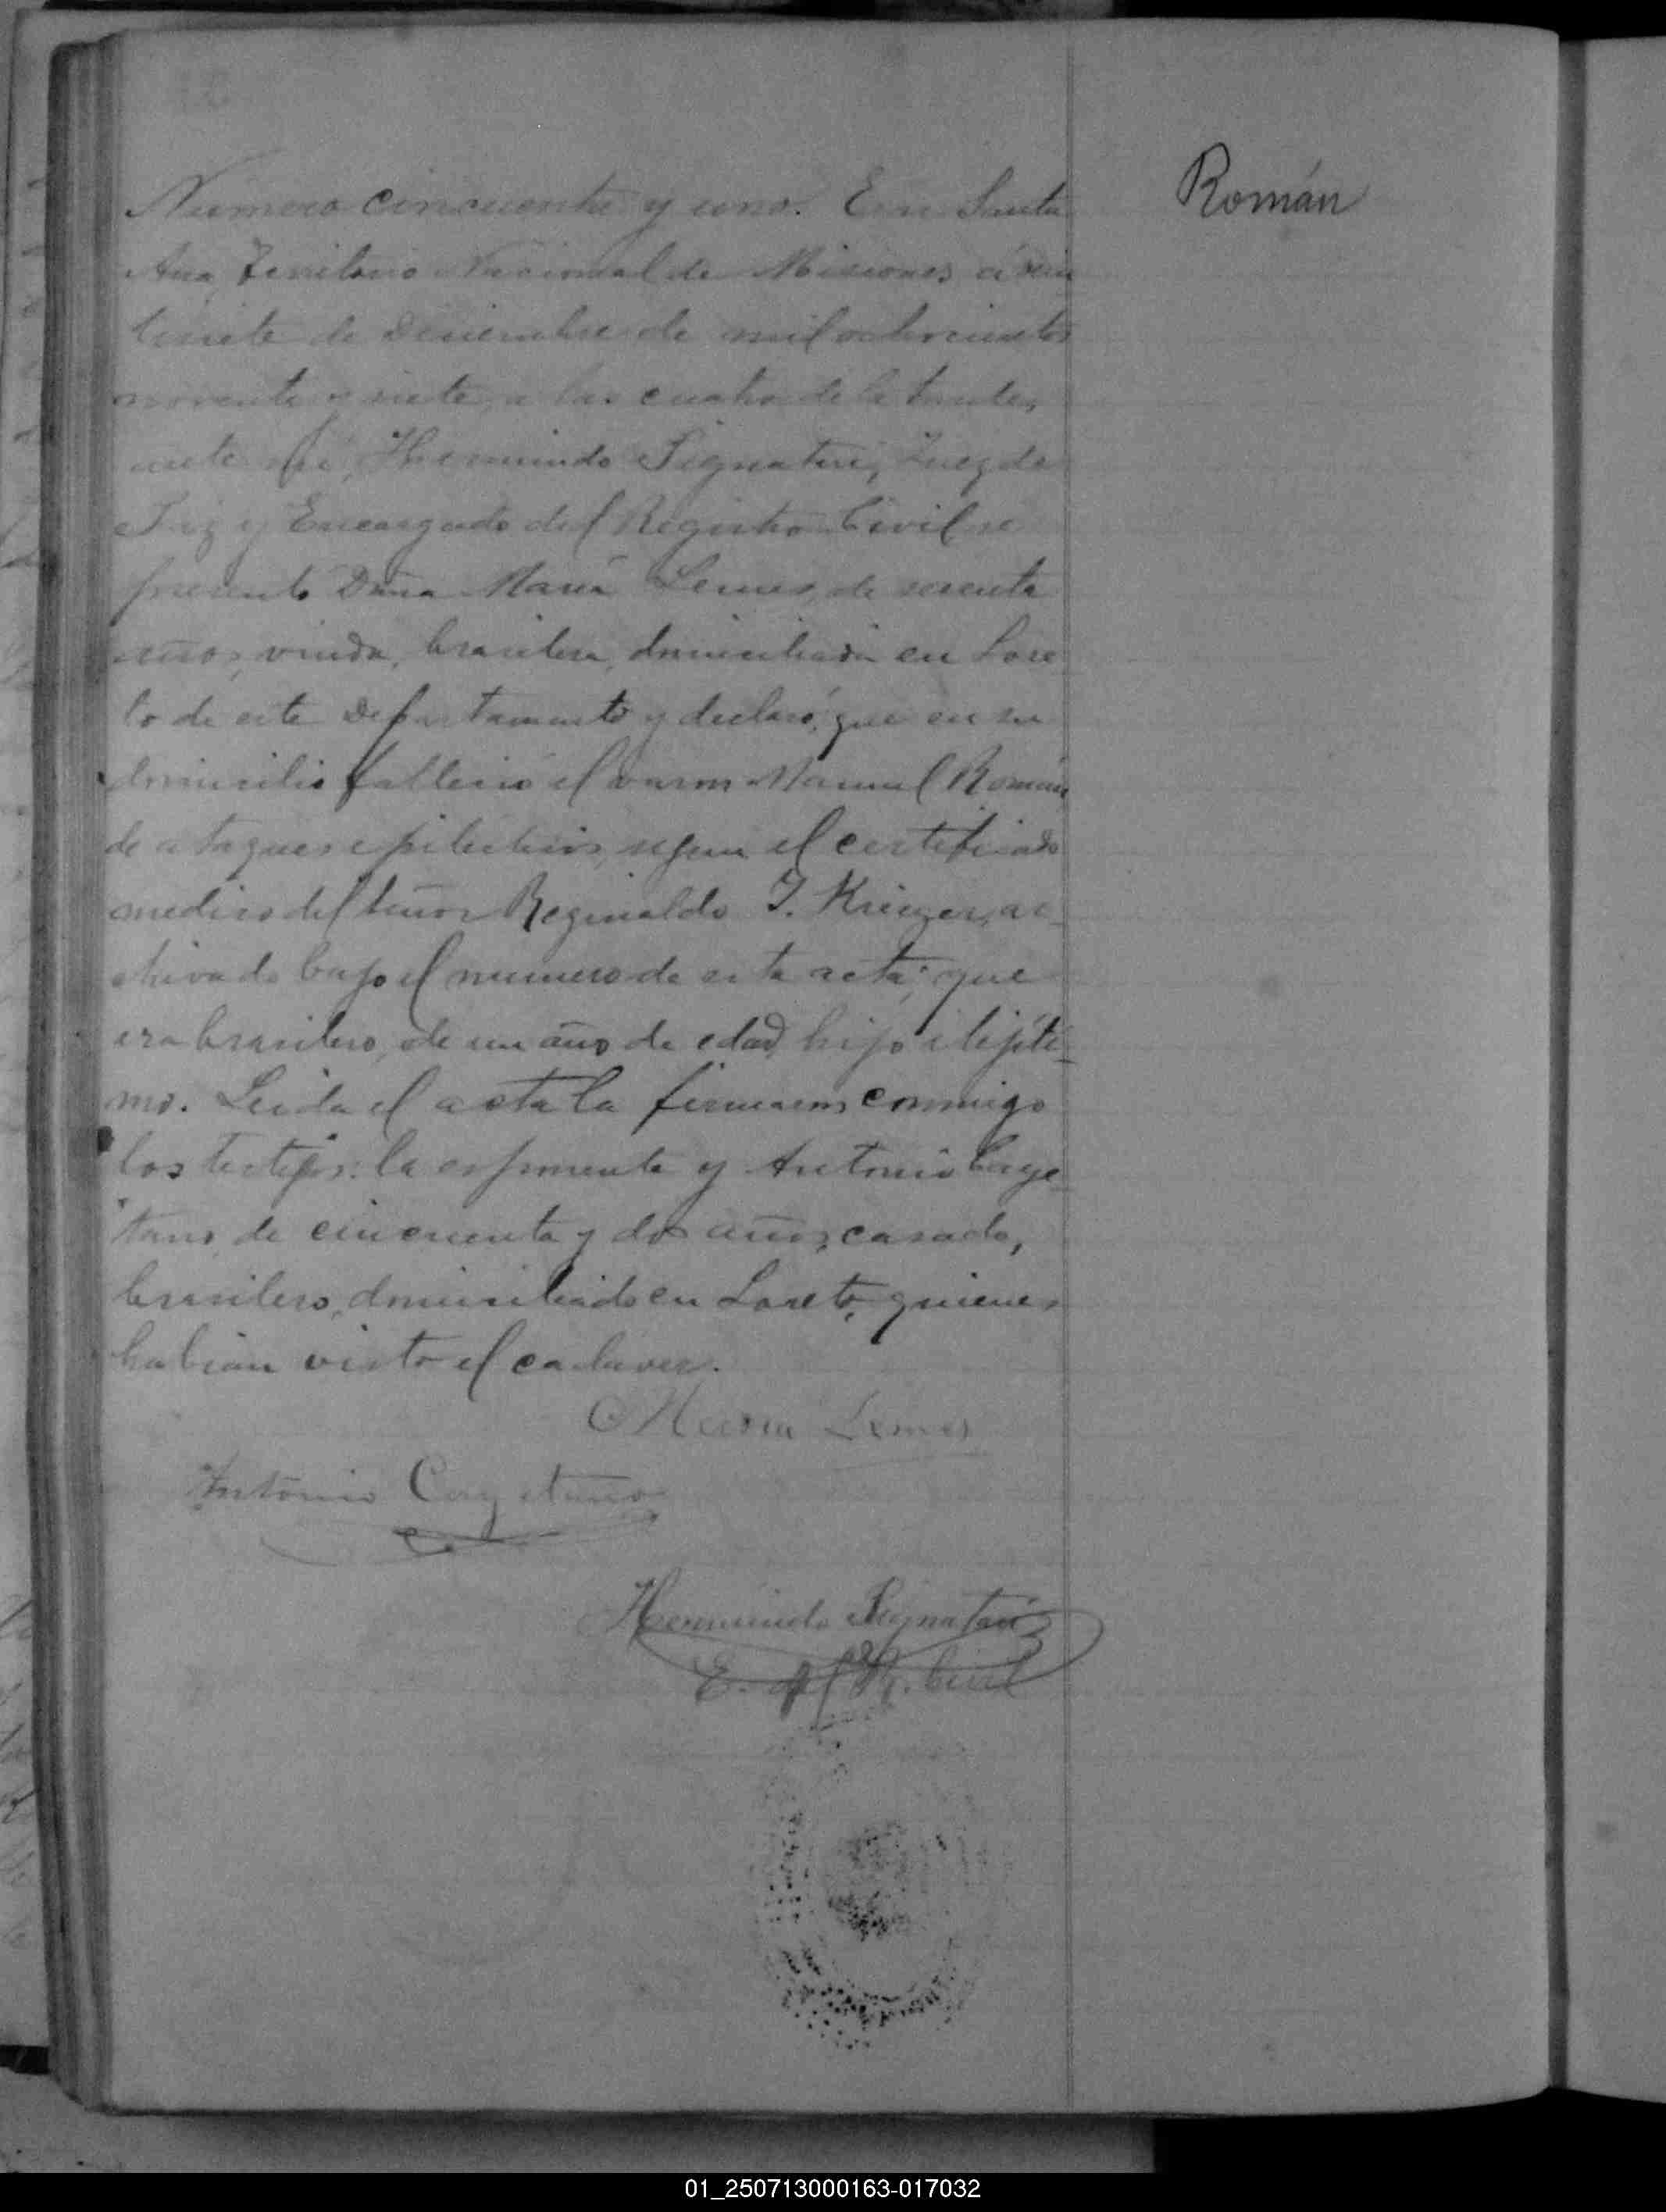 Román
Numero cincuenta y uno. En Santa
Ana, Territorio Nacional de Misiones, á vein
tisiete de Diciembre de mil ochocientos
noventa y siete, a las cuatro de la tarde,
ante mi, Hermindo Juez de
Paz y Encargado del Registro Civil se
presentó Doña María Lemes, de sesenta
años, viuda, brasilera, domiciliada en Lore
to de este Departamento y declaró, que en su
domicilio falleció el varon Manuel Román
de ataques epilecticos, segun el certificado
medico del Señor Reginaldo J. Krieger, ar-
chivado bajo el numero de esta acta; que
era brasilero, de un año de edad, hijo ilejíti-
mo. Leida el acta la firmaron conmigo
los testigos: la esponente y Antonio Caye-
tano, de cincuenta y dos años, casado,
brasilero, domiciliado en Loreto, quienes
habian visto el cadaver.
Maria Lemes
Antonio Cayetano
Hermindo
E. del R. Civil
01_250713000163-017032